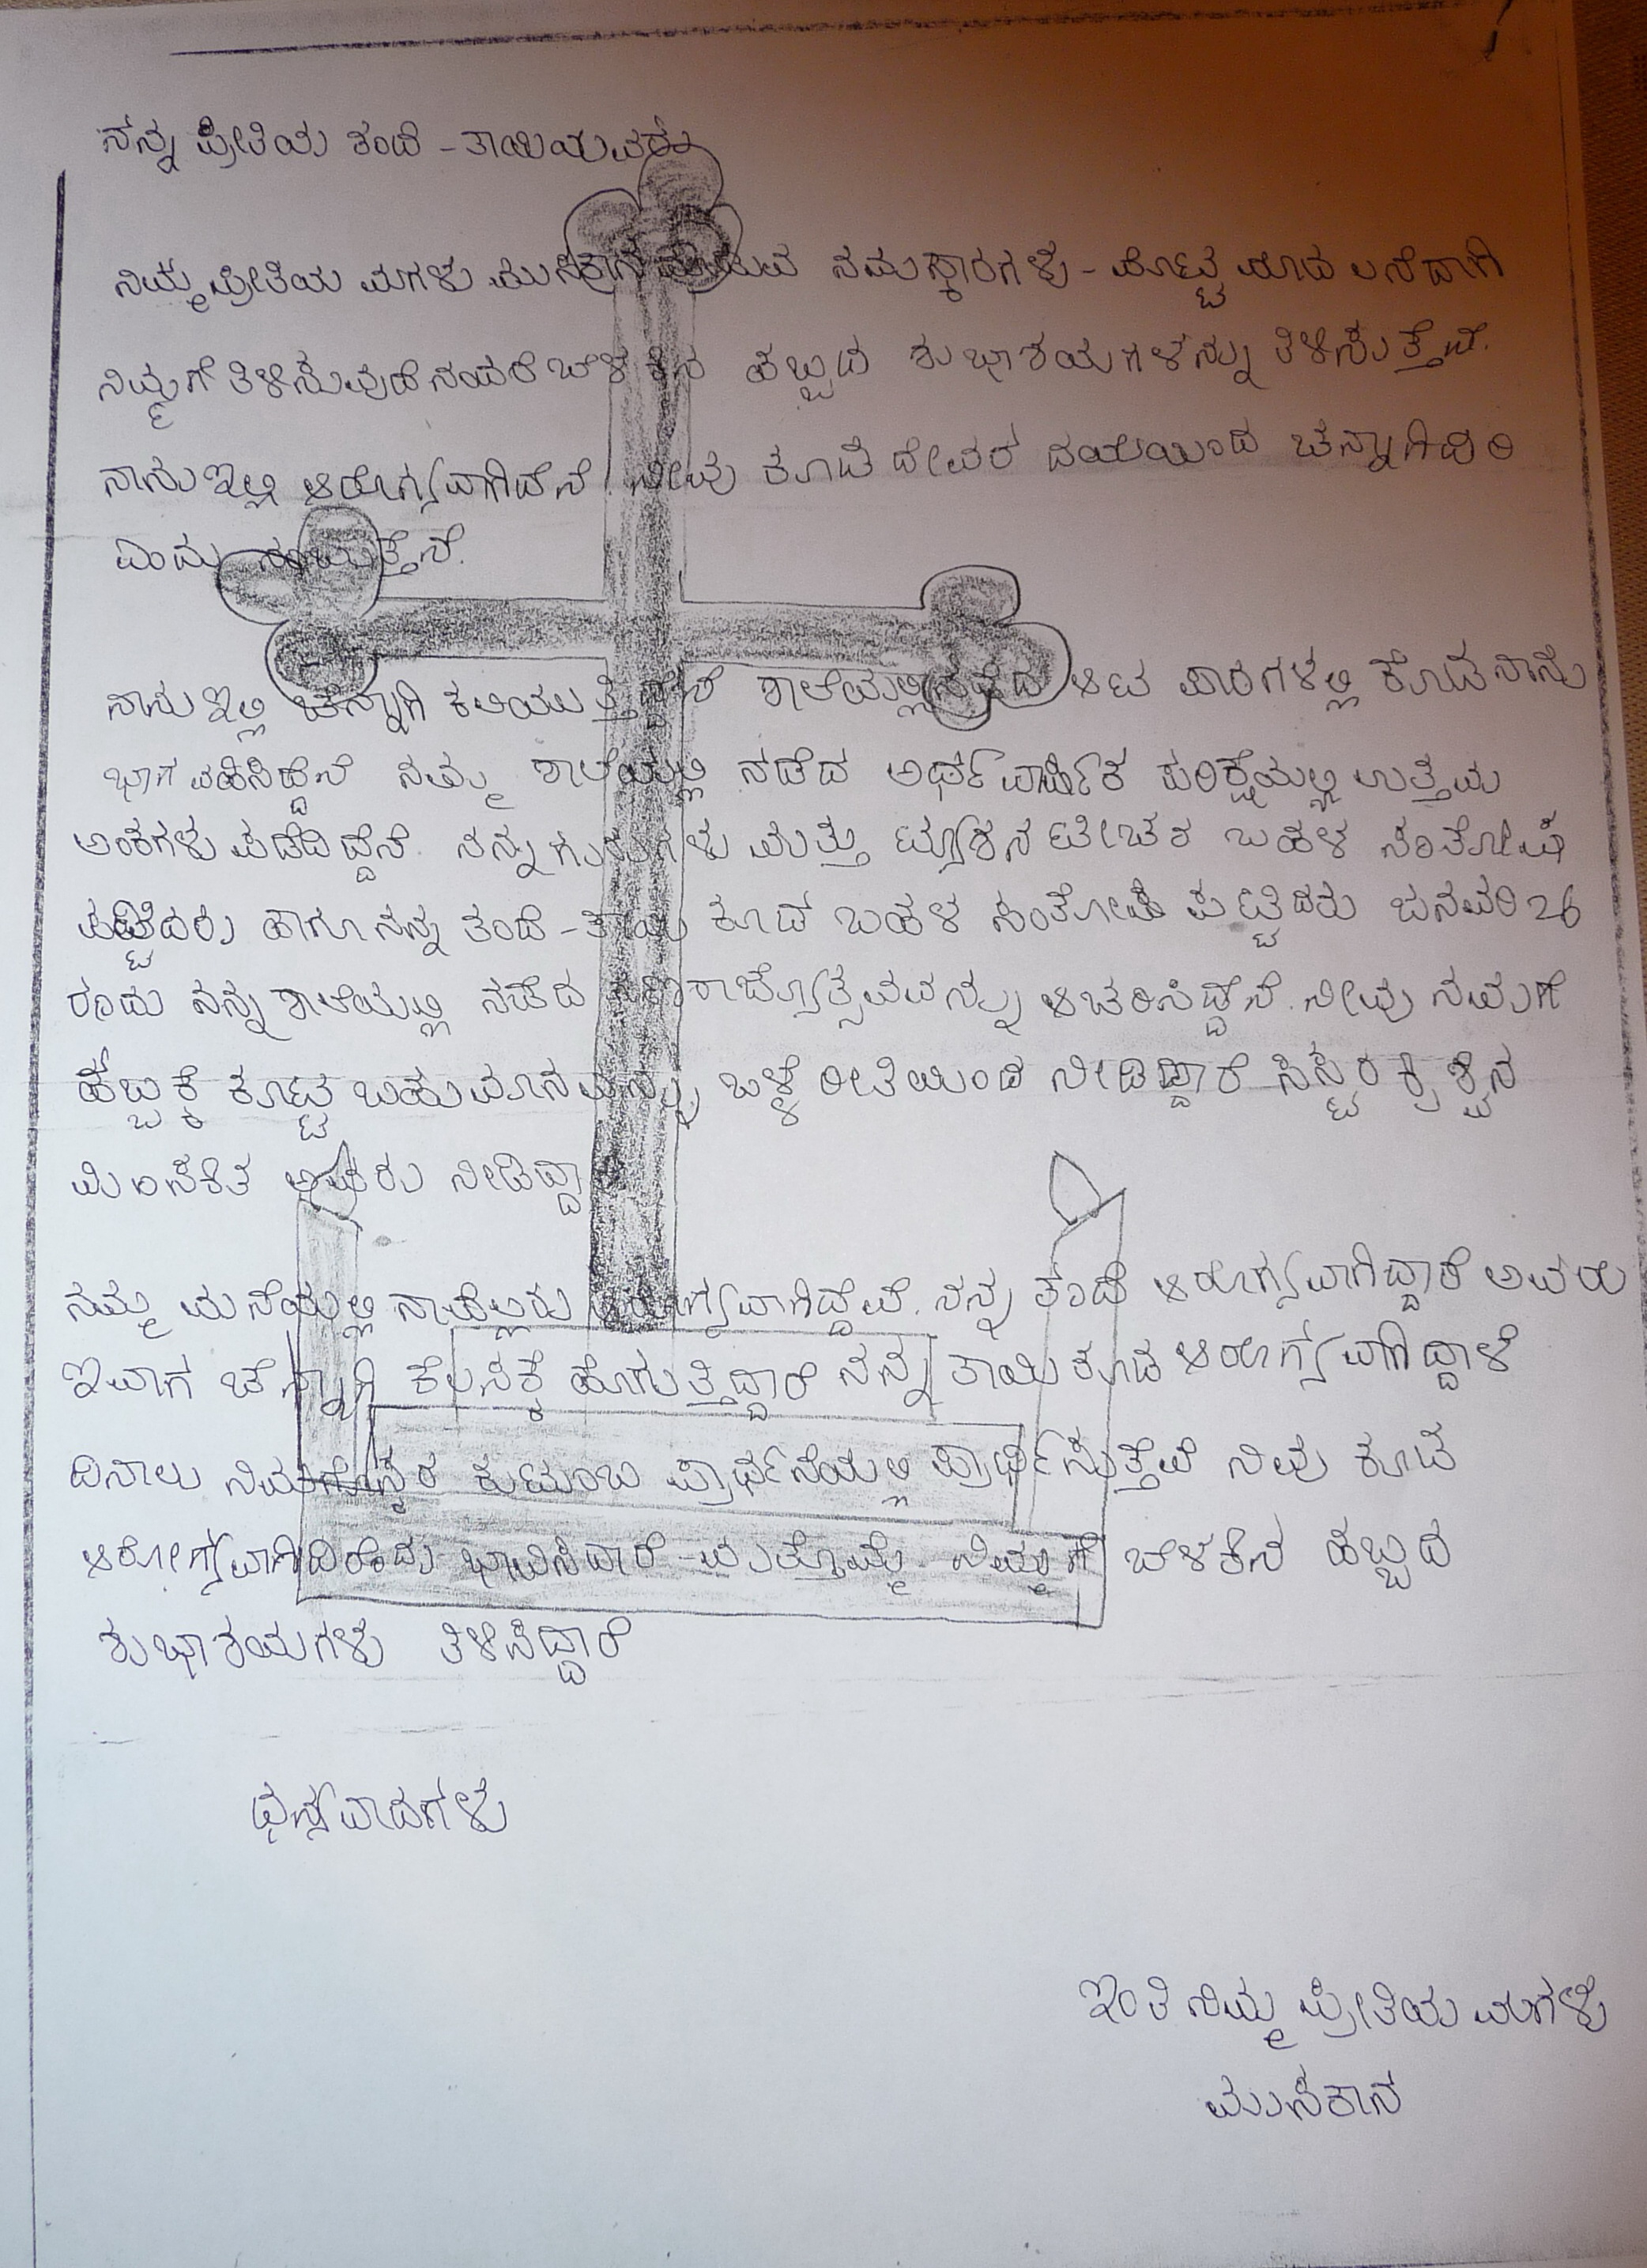 ನನ್ನ ಪ್ರೀತಿಯ ತಂದೆ - ತಾಯಿಯವರೆ
ನಿಮ್ಮ ಪ್ರೀತಿಯ ಮಗಳು ಮುಸಕಾನ ಮಾಡುವ ನಮಸ್ಕಾರಗಳು - ಮೊಟ್ಟ ಮೊದಲನೆದಾಗಿ
ನಿಮ್ಮಗೆ ತಿಳಿಸುವುದೆನಂದರೆ ಬೆಳಕಿನ ಹಬ್ಬದ ಶುಭಾಶಯಗಳನ್ನು ತಿಳಿಸುತ್ತೆನೆ.
ನಾನು ಇಲ್ಲಿ ಆರೋಗ್ಯವಾಗಿದೆನೆ. ನೀವು ಕೂಡೆ ದೇವರ ದಯೆಯಿಂದ ಚನ್ನಾಗಿದಿರಿ
ಎಂದು ನಂಬುತ್ತೆನೆ.
ನಾನು ಇಲ್ಲಿ ಚೆನ್ನಾಗಿ ಕಲಿಯುತ್ತಿದ್ದೆನೆ ಶಾಲೆಯಲ್ಲಿ ನಡೆದ ಆಟ ಪಾಠಗಳಲ್ಲಿ ಕೂಡ ನಾನು
ಭಾಗವಹಿಸಿದ್ದೆನೆ ನಮ್ಮ ಶಾಲೆಯಲ್ಲಿ ನಡೆದ ಅರ್ಧವಾರ್ಷಿಕ ಪರಿಕ್ಷೆಯಲ್ಲಿ ಉತ್ತಮ
ಅಂಕಗಳು ಪಡೆದಿದ್ದೆನೆ. ನನ್ನ ಗುರುಗಳು ಮತ್ತು ಟ್ಯೂಶನ ಟೀಚರ ಬಹಳ ಸಂತೋಷ
ಪಟ್ಟಿದರು ಹಾಗೂ ನನ್ನ ತಂದೆ - ತಾಯಿ ಕೂಡ ಬಹಳ ಸಂತೋಷ ಪಟ್ಟಿದರು ಜನವರಿ 26
ರಂದು ನನ್ನ ಶಾಲೆಯಲ್ಲಿ ನಡೆದ ಗಣರಾಜ್ಯೋತ್ಸವವನ್ನು ಆಚರಿಸಿದ್ದೆನೆ. ನೀವು ನಮಗೆ
ಹಬ್ಬಕ್ಕೆ ಕೊಟ್ಟ ಬಹುಮಾನವನ್ನು ಒಳ್ಳೆ ರೀತಿಯಿಂದ ನೀಡಿದ್ದಾರೆ ಸಿಸ್ಟರ
ನೀಡಿದ್ದಾರೆ
ನಮ್ಮ ಮನೆಯಲ್ಲಿ ನಾವೆಲ್ಲರು ಆರೋಗ್ಯವಾಗಿದ್ದೆವೆ. ನನ್ನ ತಂದೆ ಆರೋಗ್ಯವಾಗಿದ್ದಾರೆ ಅವರು
ಇವಾಗ ಚೆನ್ನಾಗಿ ಕೆಲಸಕ್ಕೆ ಹೋಗುತ್ತಿದ್ದಾರೆ ನನ್ನ ತಾಯಿ ಕೂಡ ಆರೋಗ್ಯವಾಗಿದ್ದಾಳೆ
ದಿನಾಲು ನಿಮಗೋಸ್ಕರ ಕುಟುಂಬ ಪ್ರಾರ್ಥನೆಯಲ್ಲಿ ಪ್ರಾರ್ಥಿಸುತ್ತೆವೆ ನಿವು ಕೂಡ
ಆರೋಗ್ಯವಾಗಿದಿರೆಂದು ಭಾವಿಸಿದಾರೆ - ಮತ್ತೊಮ್ಮೆ ನಿಮ್ಮಗೆ ಬೆಳಕಿನ ಹಬ್ಬದ
ಶುಭಾಶಯಗಳು ತಿಳಿಸಿದ್ದಾರೆ
ಧನ್ಯವಾದಗಳು
ಇಂತಿ ನಿಮ್ಮ ಪ್ರೀತಿಯ ಮಗಳು
ಮುಸಕಾನ